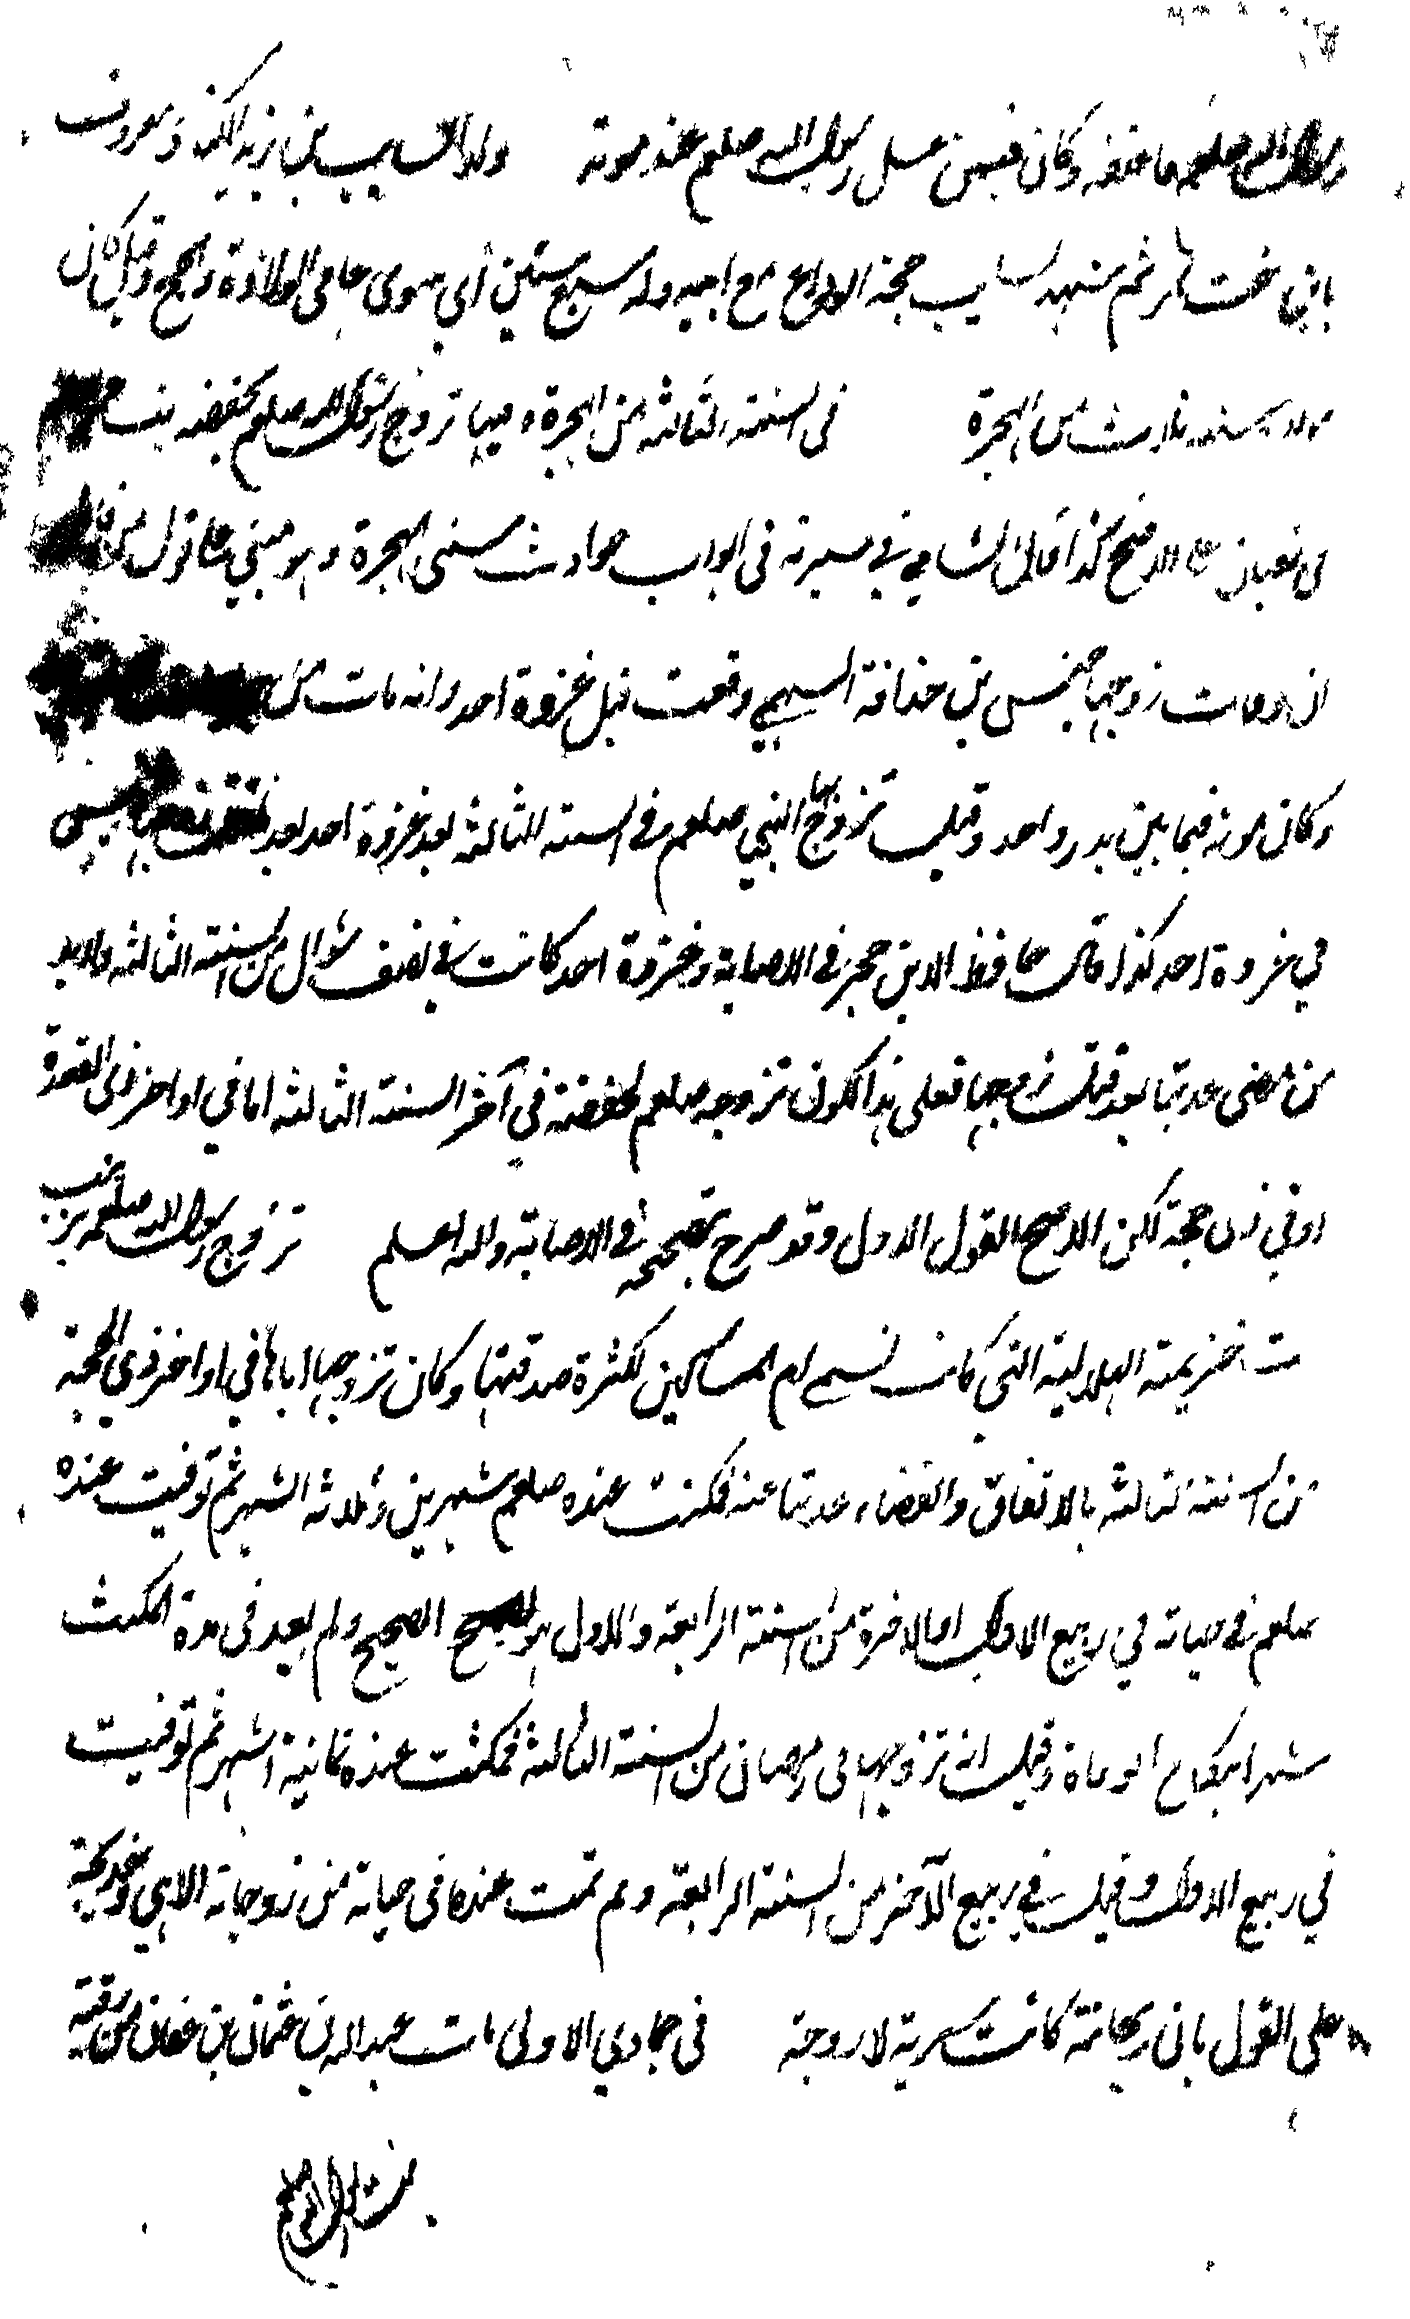 رسول الله صلعم ما خلفه وكان فيمن غسل رسول الله صلعم عند موته ولد السايب بن يزيد الكندي المعروف
بابن اخت نمر ثم شهد السايب حجة الوداع مع ابيه وله سبع سنين اي سوى عامي الولادة والحج وقيل كان
مولده سنة ثلاث من الهجرة في السنة الثالثة من الهجرة وفيها تزوج رسول الله صلعم بحفصة بنت
في شعبان على الاصح كذا قال الشامي في سيرته في ابواب حوادث سني الهجرة وهو مبني على قول من قال
ان وفات زوجها خنيس بن حذافة السهمي وقعت قبل غزوة احد وانه مات من
وكان موته فيما بين بدر واحد وقيل تزوجها النبي صلعم في السنة الثالثة بعد غزوة احد بعد
في غزوة احد كذا قال حافظ الابن حجر في الاصابة وغزوة احد كانت في نصف شوال من السنة الثالثة ولابد
من مضى عدتها بعد قتل زوجها فعلى هذا يكون تزوجه صلعم لحفصة في آخر السنة الثالثة اما في اواخر ذي القعدة
او في ذي حجة لكن الاصح القول الاول وقد صرح بتصحيحه في الاصابة والله اعلم تزوج رسول الله صلعم بزينب
بنت خزيمة الهلالية التي كانت تسمى ام المساكين لكثرة صدقتها وكان تزوجها اياها في اواخر ذي الحجة
من السنة الثالثة بالاتفاق وانقضاء عدتها عنه فمكثت عنده صلعم شهرين وثلاثة اشهر ثم توفيت عنده
صلعم في حياته في ربيع الاول او الاخرة من السنة الرابعة والاول هو الصحيح ولم يعد في مدة المكث
شهرا بنكاح الوفاة وقيل انه تزوجها في رمضان من السنة الثالثة فمكثت عنده ثمانية اشهر ثم توفيت
في ربيع الاول وقيل في ربيع الآخر من السنة الرابعة ولم تمت عنده في حياته من زوجاته الا هي وخديجة
على القول بان ريحانة كانت سرية لا زوجة في جمادي الاولى مات عبد الله بن عثمان بن عفان من رقية
بنت رسول الله صلعم